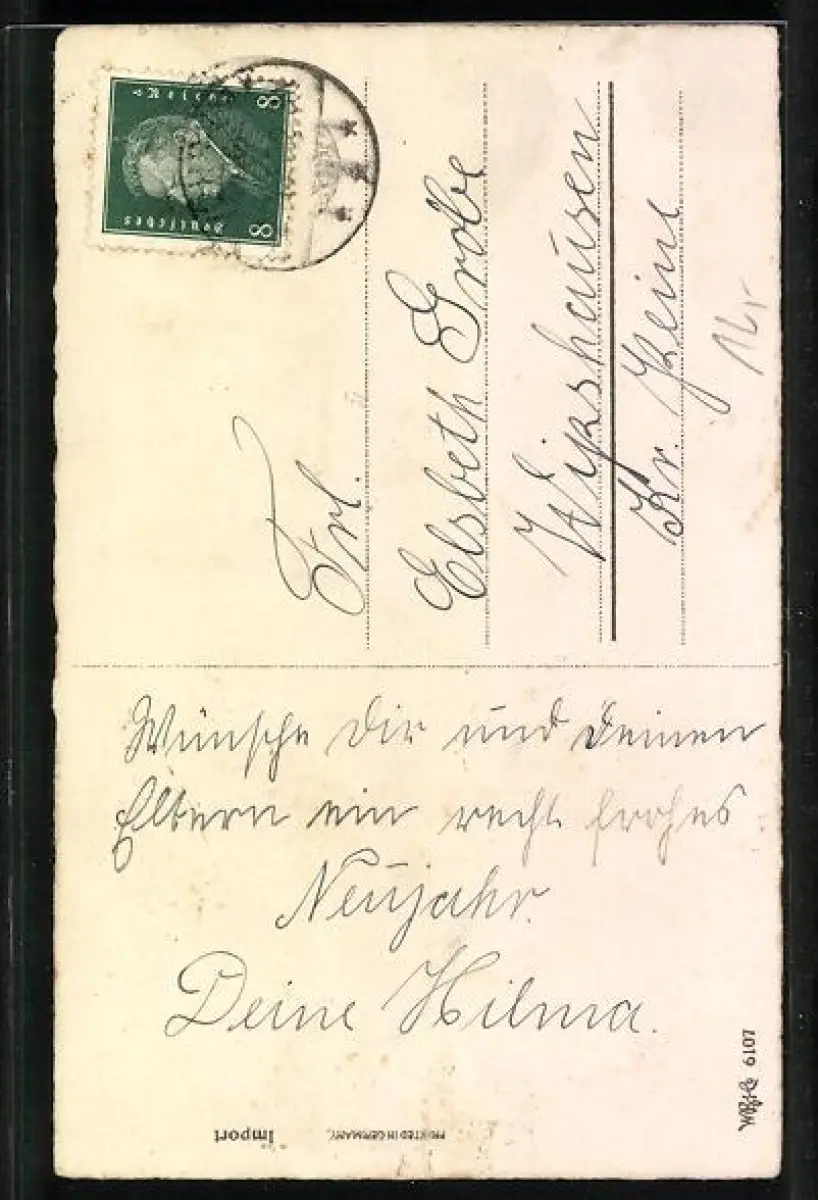 8 8
Deutsches
Frl.
Elsbeth Gröbe
Wipshausen
Kr. Peine
12,-
Wünsche Dir und Deinen
Eltern ein recht frohes
Neujahr.
Deine Hilma.
Import
PRINTED IN GERMANY.
6107